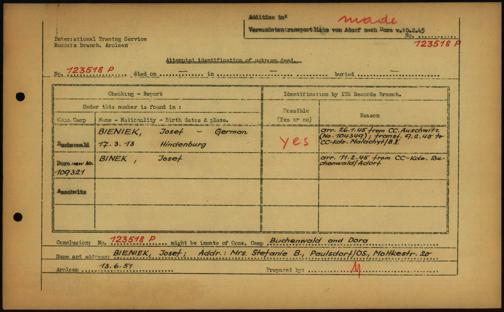 Addition in: made
Verwundetentransportliste von Adorf nach Dora v.10.2.45
International Tracing Service
Records Branch, Arolsen
123518 P
Attempted identification of unknown dead.
No. 123518 P died on — in — buried —
Checking - Report
Identification by ITS Records Branch.
Under this number is found in :
Possible
(Yes or no)
Reason
Conc.Camp
Name - Nationality - Birth dates & place.
BIENIEK, Josef - German
Buchenwald 17.3.13 Hindenburg
yes
arr. 26.1.45 from CC. Auschwitz
(No. 104349); transf. 9.2.45 to
CC-Kdo. Malachyt/BII
Dora new No.
109321
BINEK, Josef
arr. 11.2.45 from CC-Kdo. Bu-
chenwald/Adorf.
Auschwitz
Conclusion: No. 123518 P might be inmate of Conc. Camp Buchenwald and Dora
Name and address: BIENIEK, Josef; Addr.: Mrs. Stefanie B., Paulsdorf/OS, Moltkestr. 20
Arolsen 13.6.51 Prepared by: